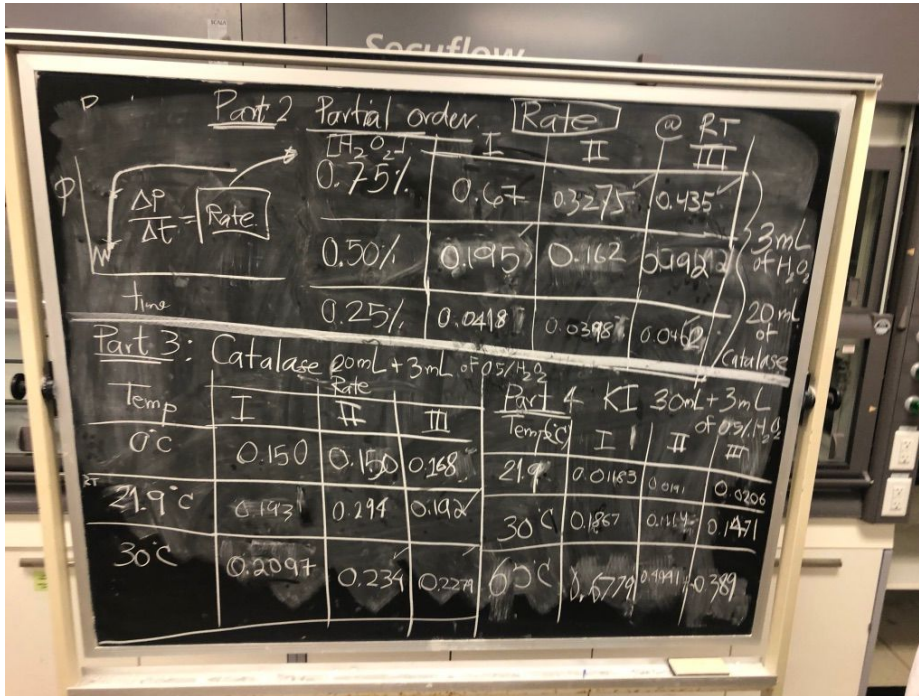 Secuflow
Part 2 Partial order Rate @ RT
[H2O2] I II III
0.75% 0.67 0.3275 0.435
P ΔP/Δt = Rate
0.50% 0.195 0.162
3mL of H2O2
time
0.25% 0.0418 0.0398
20 mL of Catalase
Part 3: Catalase 20mL + 3mL of 0.5% H2O2
Rate
Temp I II III
0°C 0.150 0.150 0.168
RT 21.9°C 0.193 0.294 0.192
30°C 0.2097 0.234 0.2279
Part 4 KI 30mL + 3mL
of 0.5% H2O2
Temp(°C) I II III
21.9 0.01183 0.0191 0.0206
30°C 0.1867 0.1471
60°C 0.6779 0.389